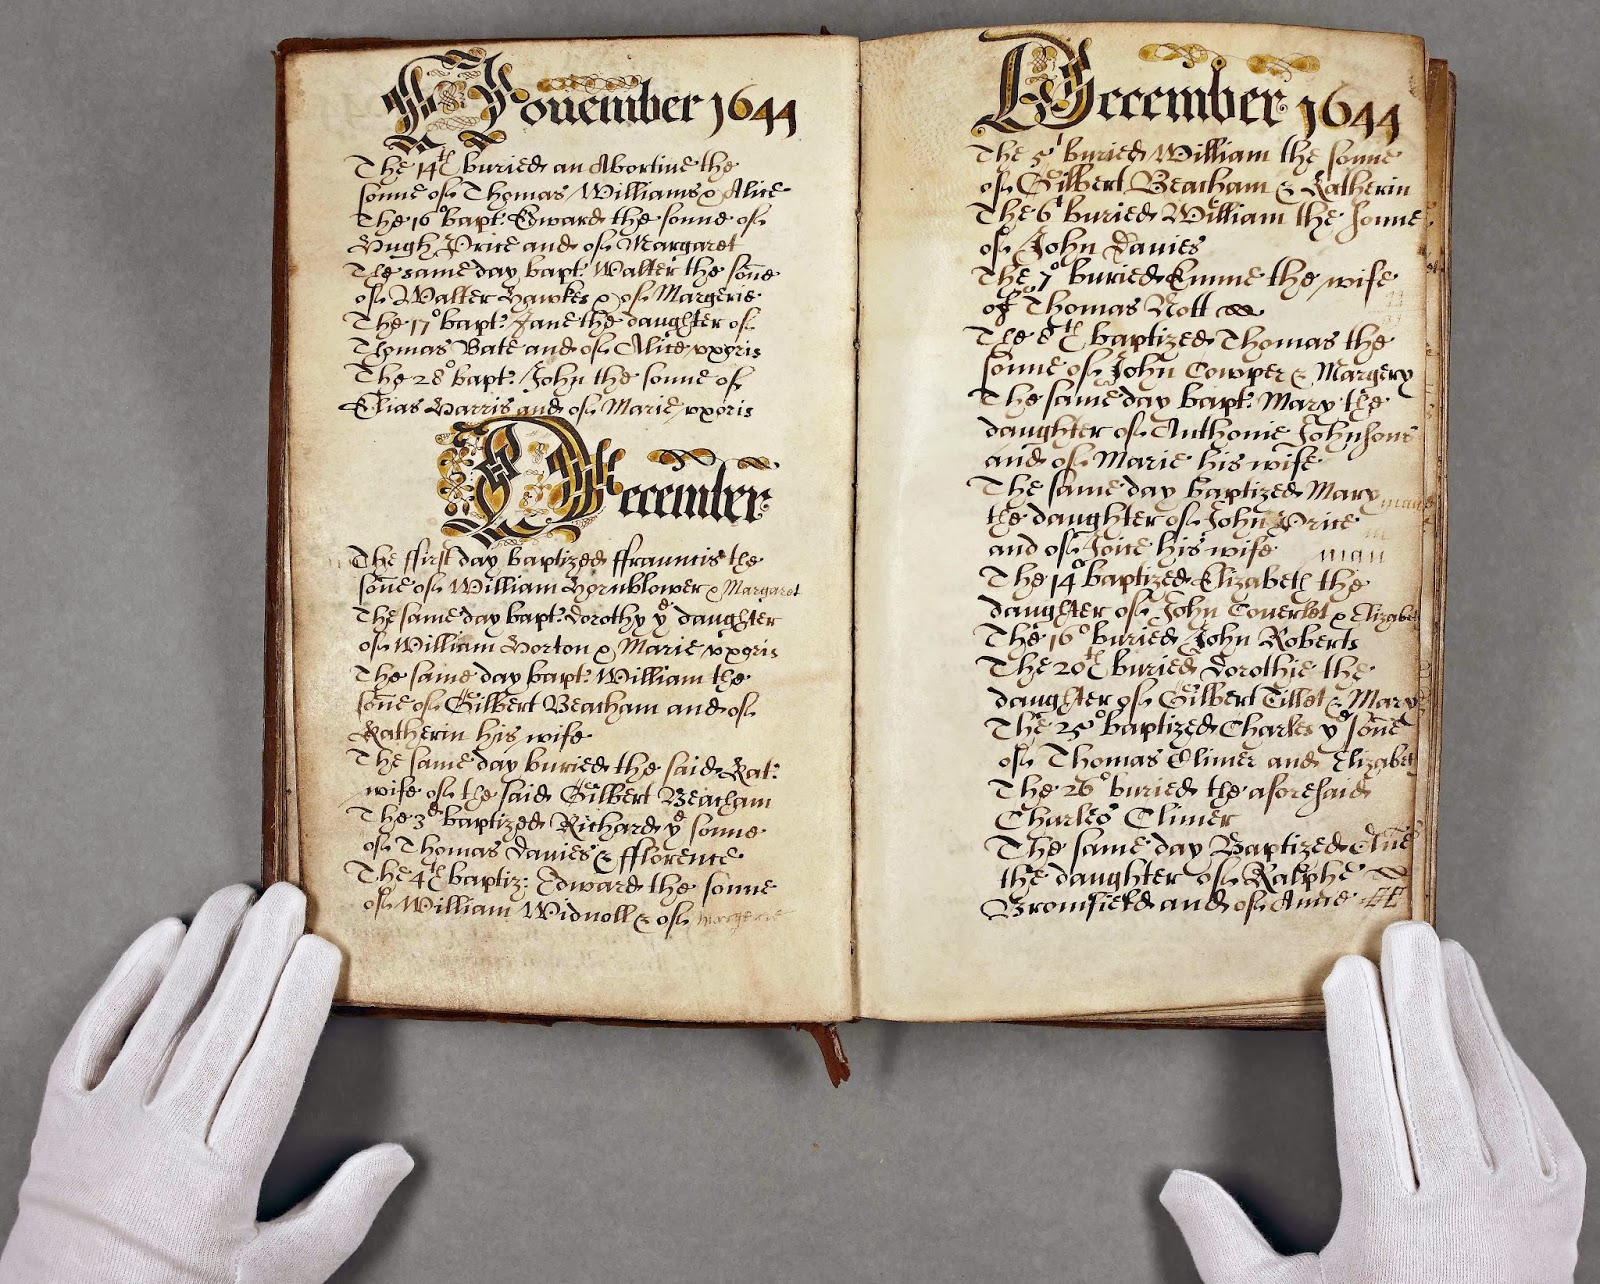 November 1644
The 14th buried an Abortive the
sonne of Thomas Williams & Alice
The 16º bapt: Edward the sonne of
Hugh Price and of Margaret
The same day bapt: Walter the sōne
of Walter Hawkes & of Margerie
The 17º bapt: Jane the daughter of
Thomas Bate and of Alice vxoris
The 28º bapt: John the sonne of
Elias Harris and of Marie vxoris
December
The ffirst day baptized ffrauncis the
sōne of William Hornblower & Margaret
The same day bapt: Dorothy yᵉ daughter
of William Horton & Marie vxoris
The same day bapt: William the
sōne of Gilbert Beacham and of
Katherin his wife
The same day buried the said Kat:
wife of the said Gilbert Beacham
The 3d baptized Richard yᵉ sonne
of Thomas Davies & fflorence
The 4th baptiz: Edward the sonne
of William Widnoll & of Margerie
December 1644
The 5t buried William the sonne
of Gilbert Beacham & Katherin
The 6t buried William the sonne
of John Davies
The 7º buried Emme the wife
of Thomas Nott
The 8th baptized Thomas the
sonne of John Cowper & Margery
The same day bapt: Mary the
daughter of Anthonie Johnsons
and of Marie his wife
The same day baptized Mary
the daughter of John Price
and of Joice his wife man
The 14º baptized Elizabeth the
daughter of John Couerlet & Elizabet
The 16º buried John Roberts
The 20th buried Dorothie the
daughter of Gilbert Tillet & Mary
The 25º baptized Charles yᵉ sōne
of Thomas Climer and Elizabet
The 26º buried the aforesaid
Charles Climer
The same day Baptized
the daughter of Ralphe
Bromfield and of Anne